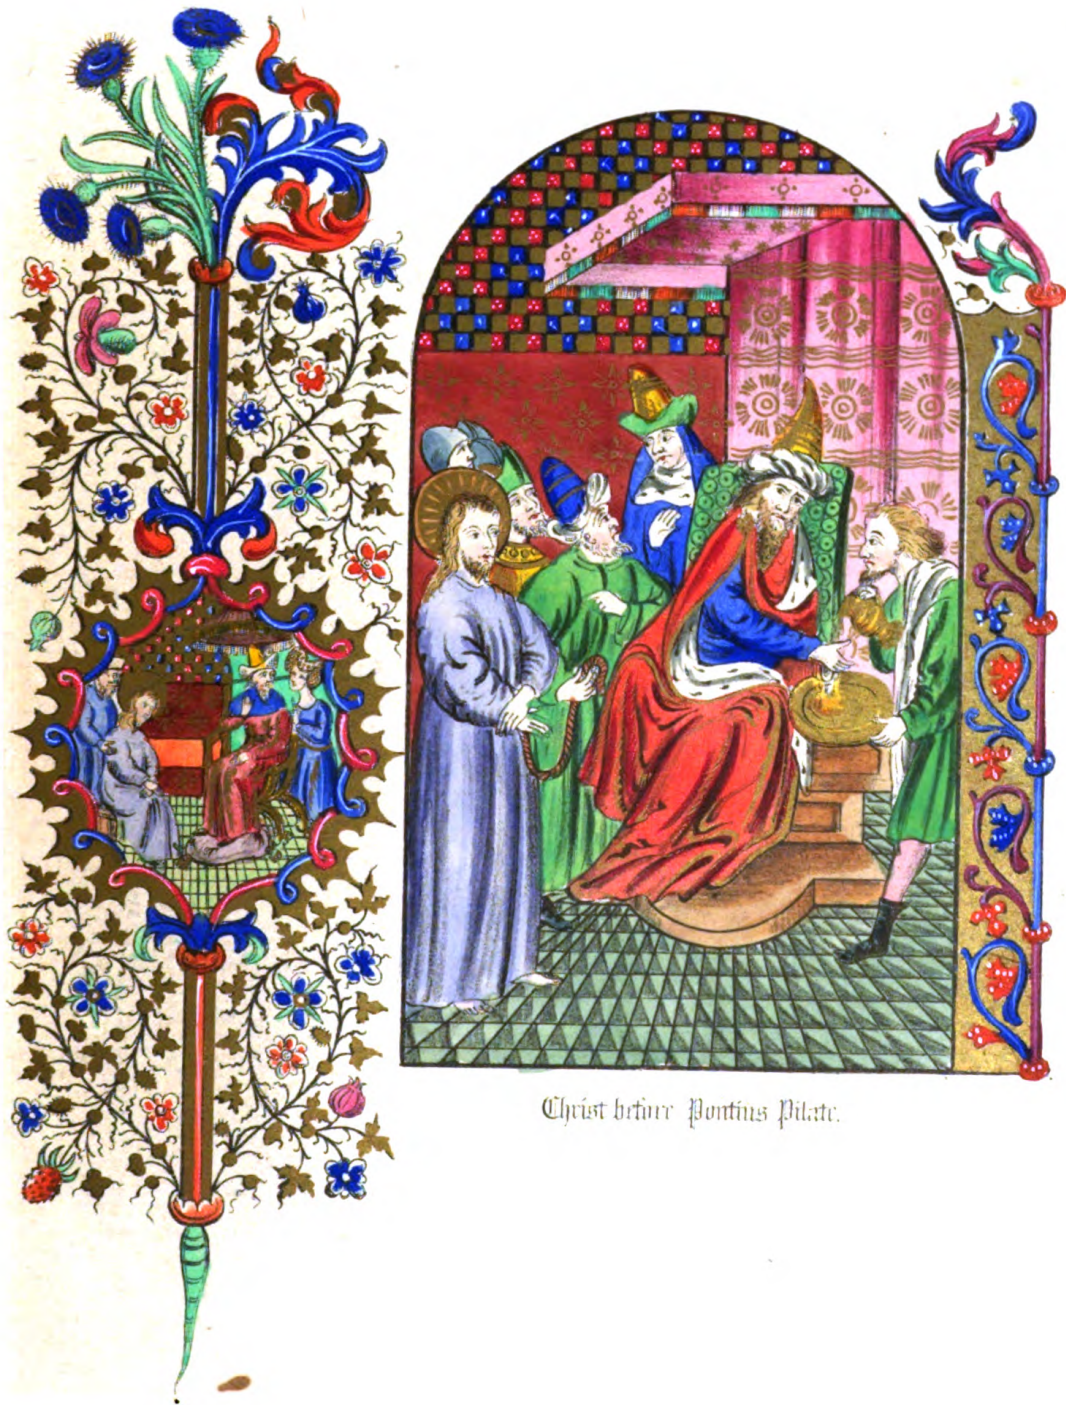 Christ before Pontius Pilate.